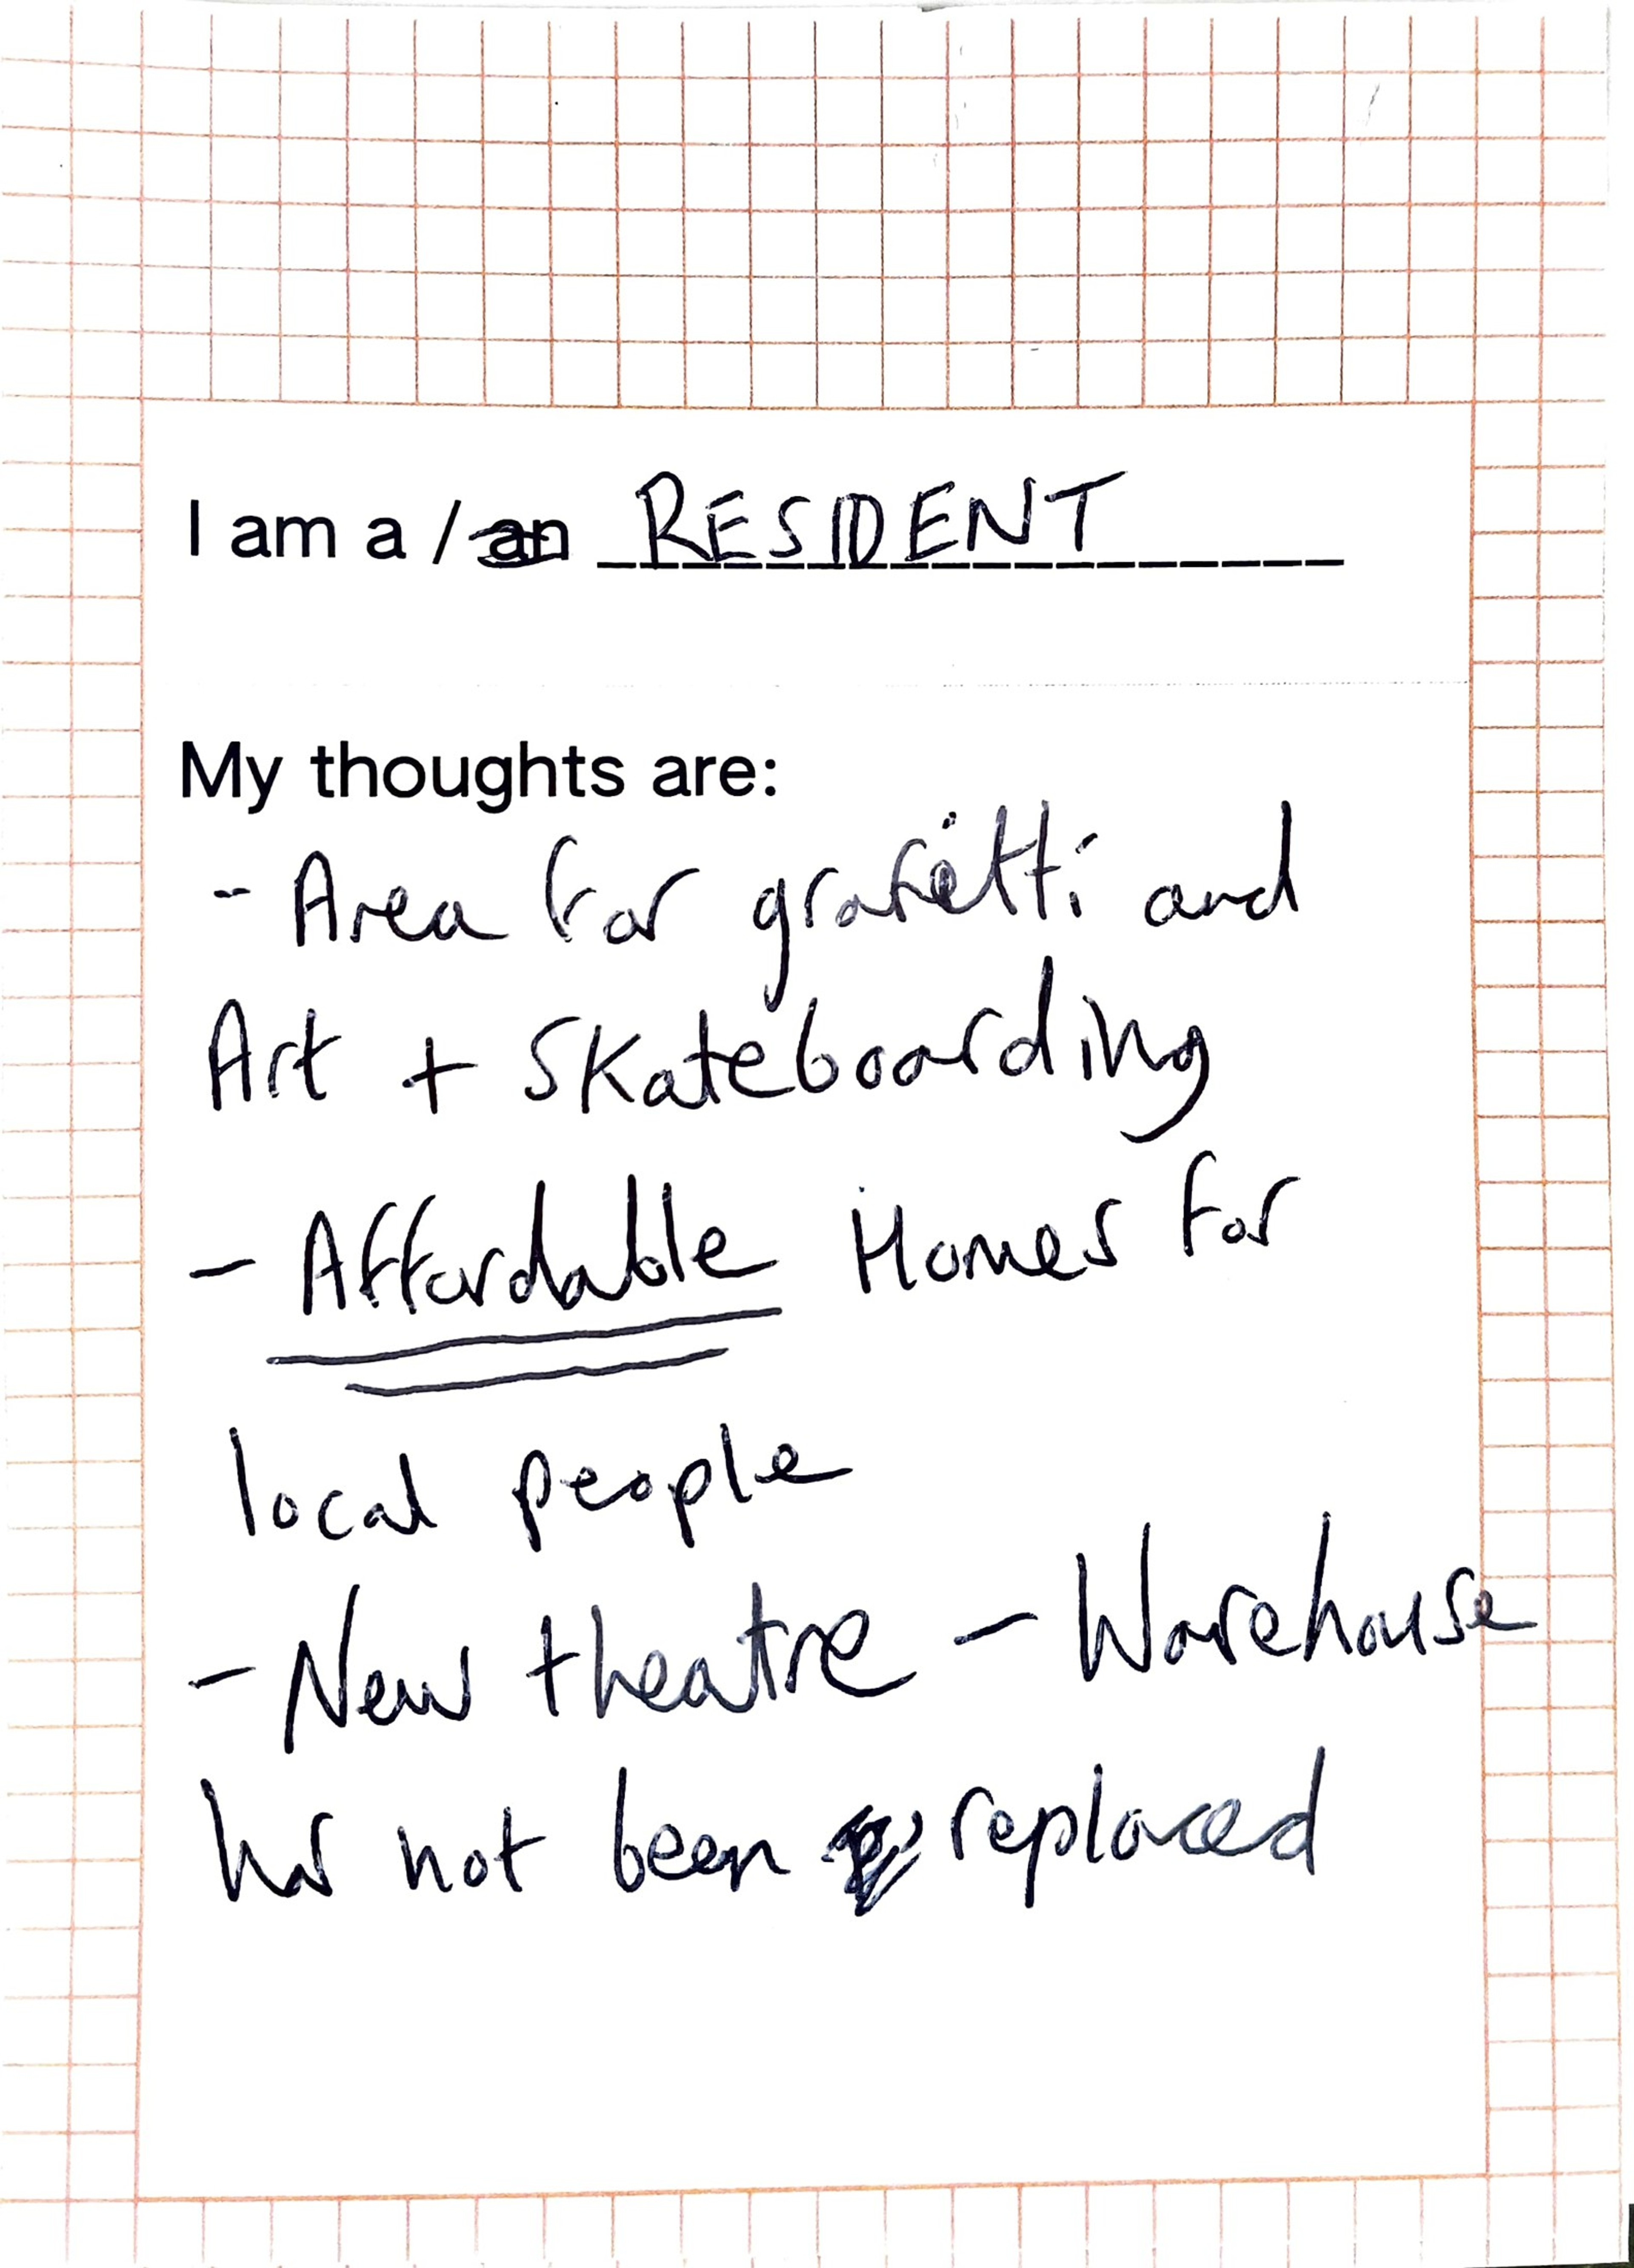 I am a / an RESIDENT
My thoughts are:
- Area for grafietti and
Art + Skateboarding
- Affordable Homes for
local people
- New theatre - Warehouse
has not been replaced